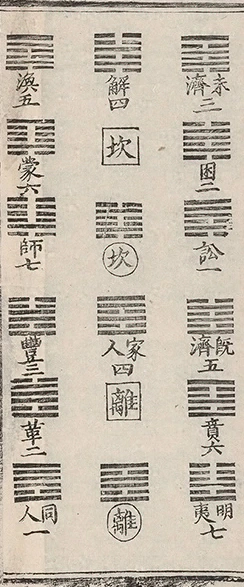 未濟三
困二
訟一
既濟五
賁六
明夷七
解四
坎
坎
家人四
離
離
渙五
蒙六
師七
豐三
革二
同人一